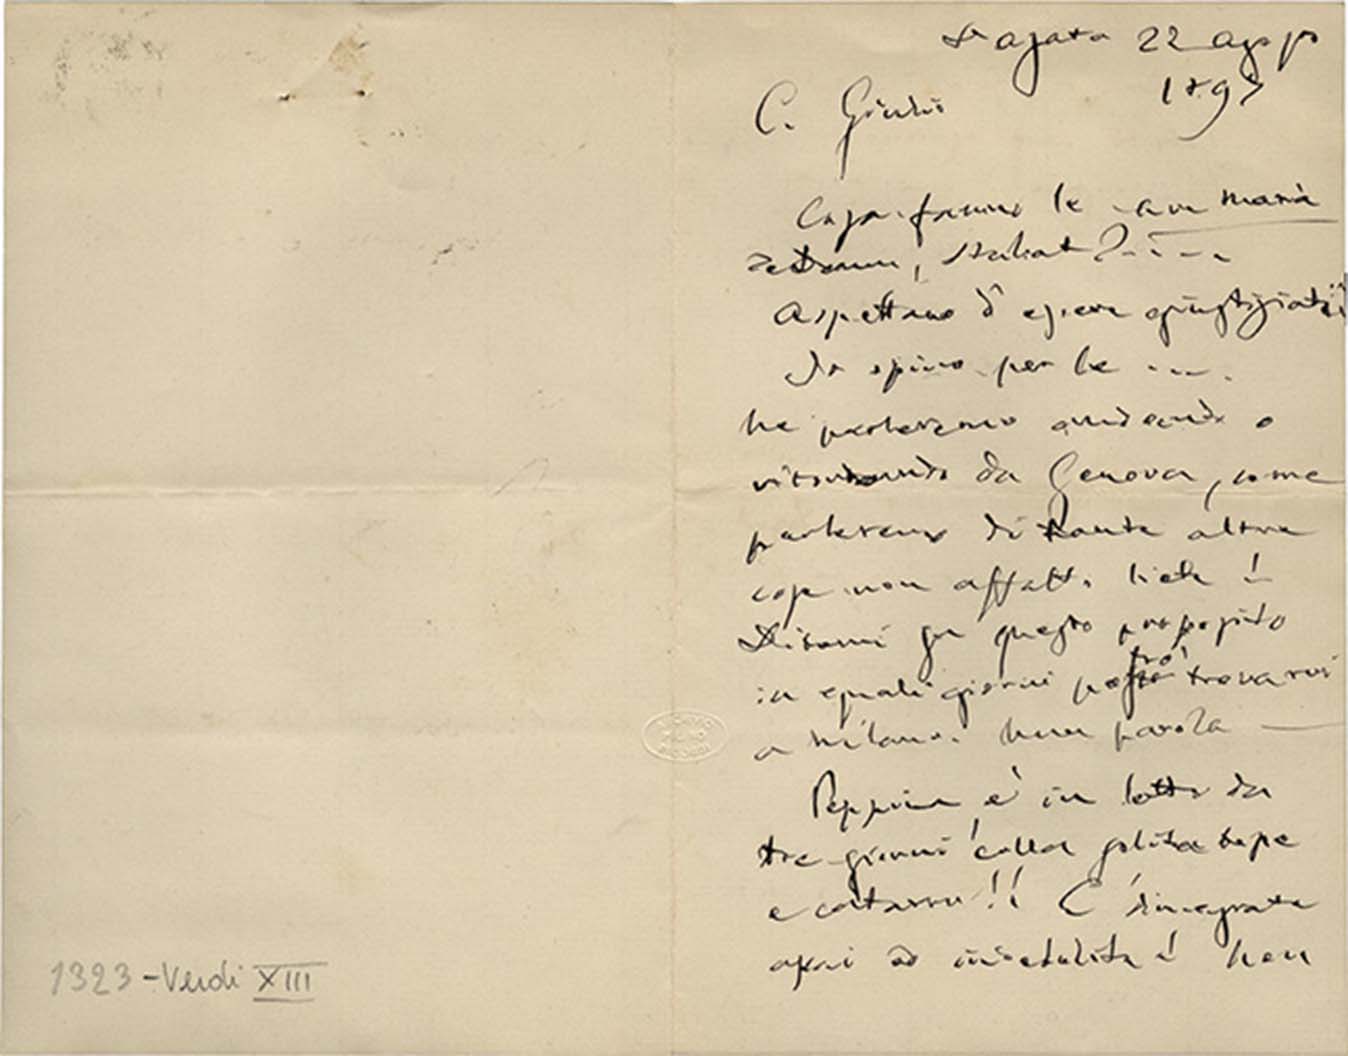 S. Agata 22 Agosto
1897
C. Giulio
Cosa fanno le Ave Maria
TeDeum, Stabat? - - - -
Aspettano d'essere giustiziati!!
Io spiro per le ....
Ne parleremo andando o
ritornando da Genova, come
parleremo di tante altre
cose non affatto liete!
Ditemi su questo proposito
in quali giorni potrò trovarvi
a Milano. Una parola —
Peppina è in letto da
tre giorni colla solita tosse
e catarro!! È dimagrata
assai ed indebolita! Non
1323 - Verdi XIII